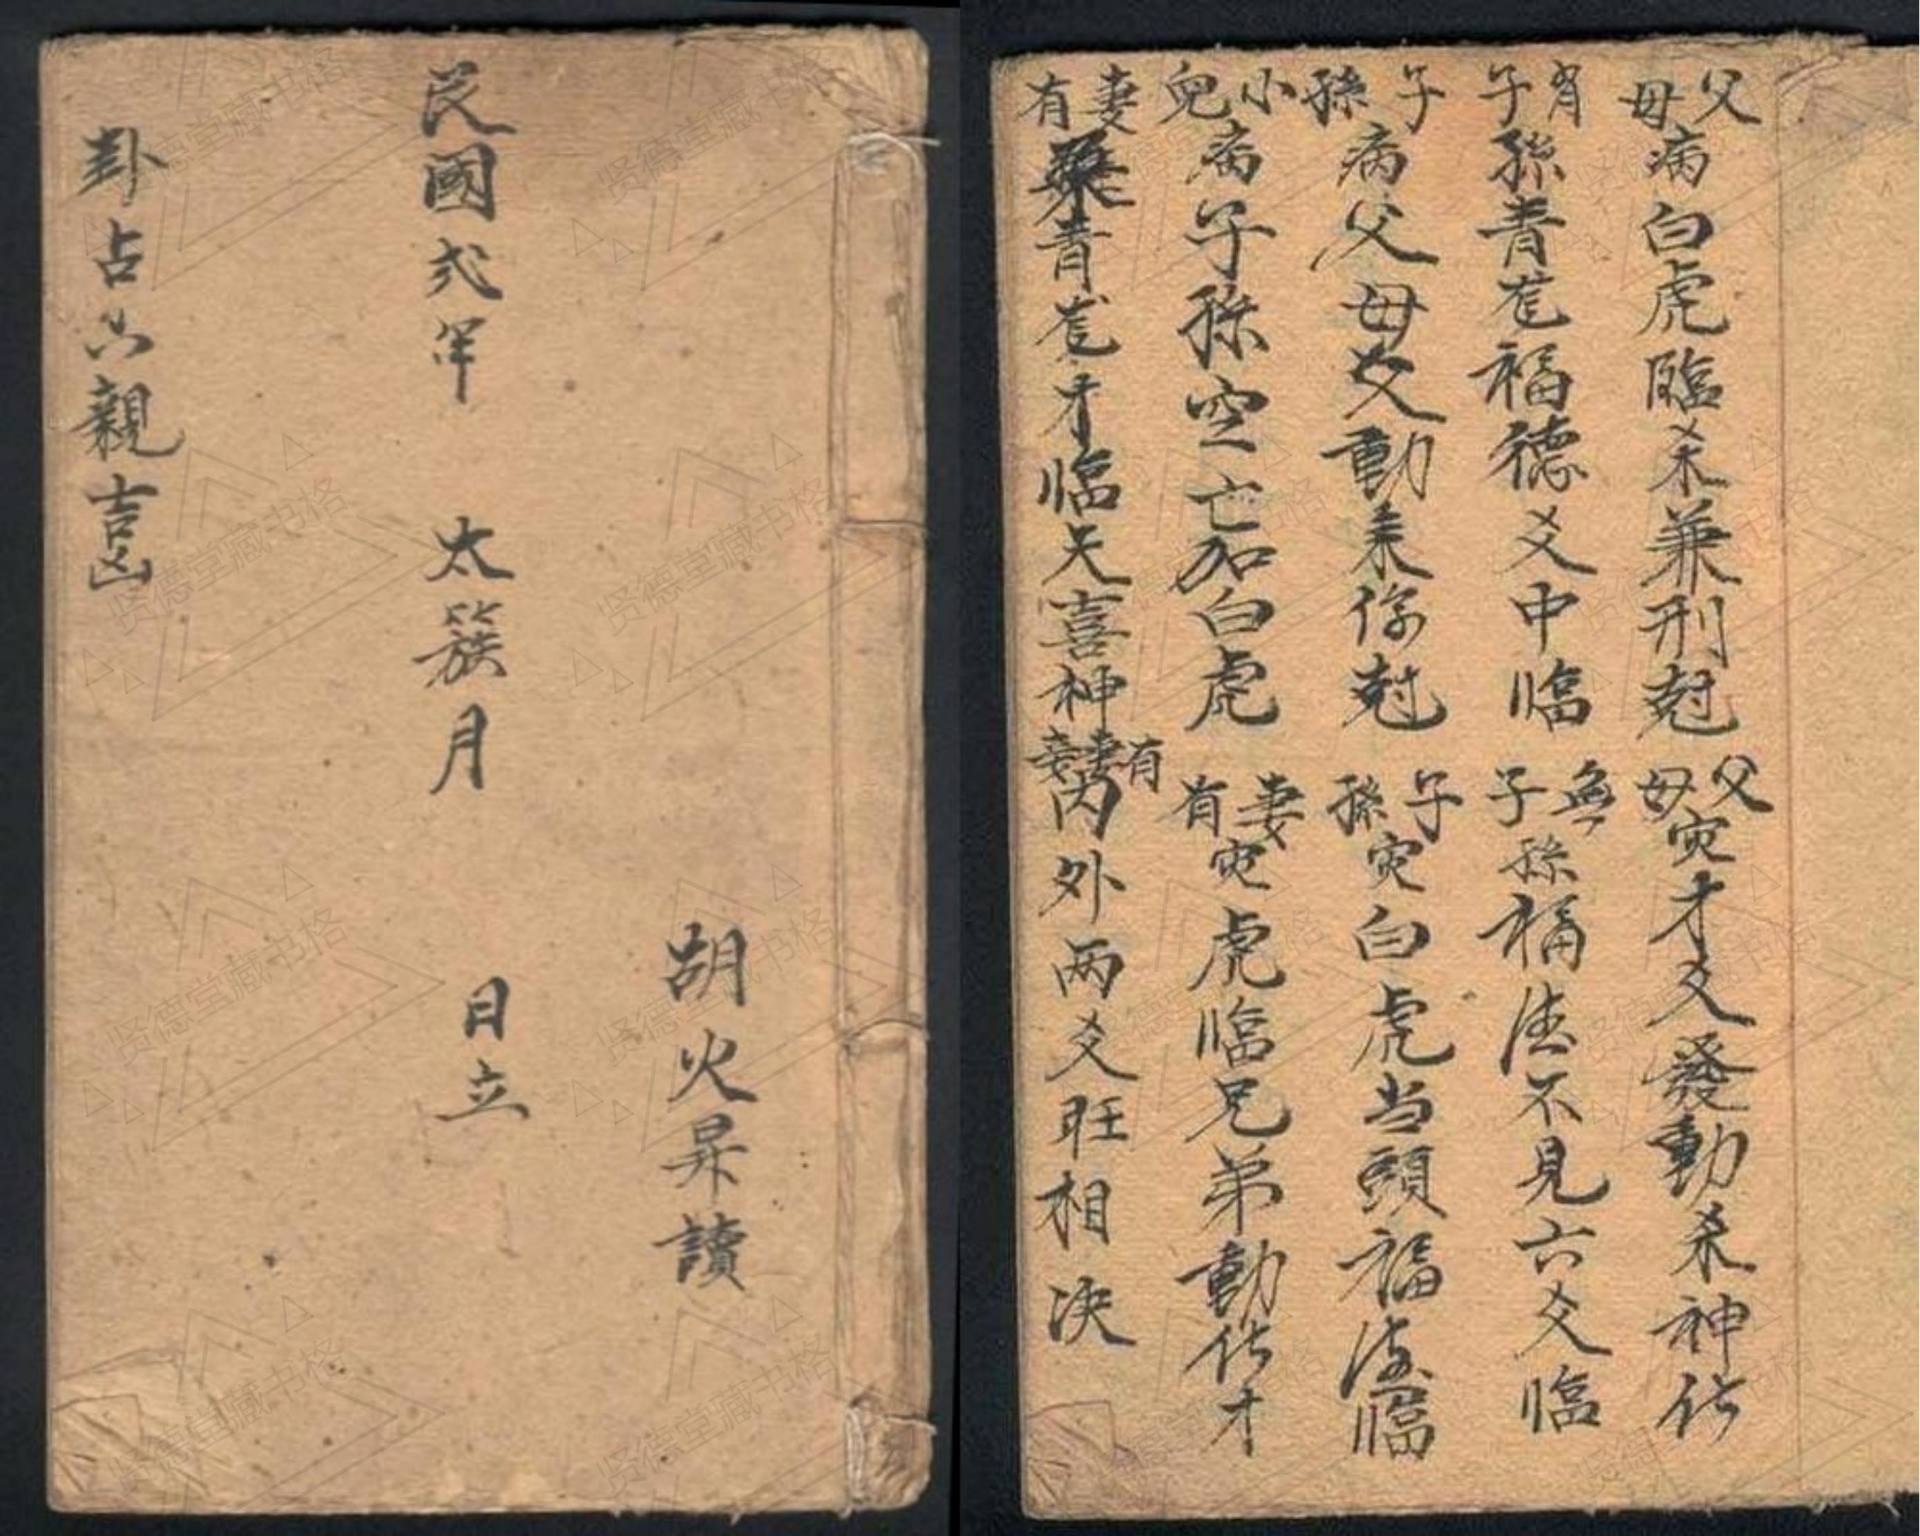 胡火昇讀
民國弍年 太簇月 日立
卦占六親吉凶
父母病白虎臨杀兼刑尅
父母灾才爻發動杀神伤
有子孫青龙福德爻中临
無子孫福德不見六爻临
子孫病父母爻動来伤尅
子孫灾白虎当頭福德临
小兒病子孫空亡加白虎
妻有灾虎临兄弟動伤才
妻有青龙才临天喜神
有妻妾内外两爻旺相决
贤德堂藏书格